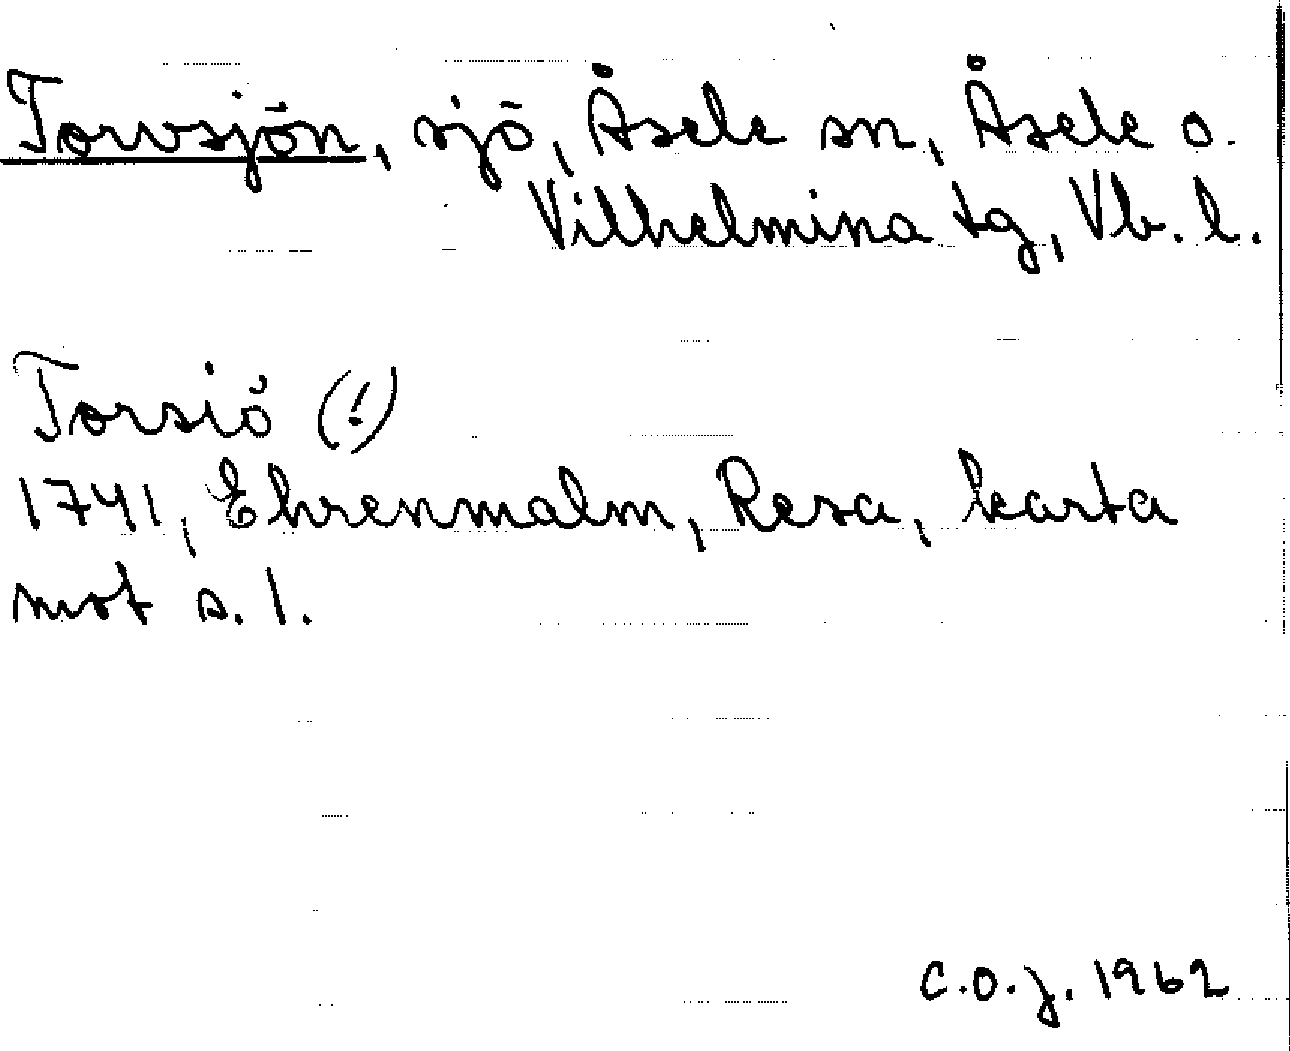 Torvsjön, sjö, Åsele sn, Åsele o.
Vilhelmina tg, Vb. l.
Torsiö (!)
1741, Ehrenmalm, Resa, karta
mot s. 1.
C.O.J. 1962